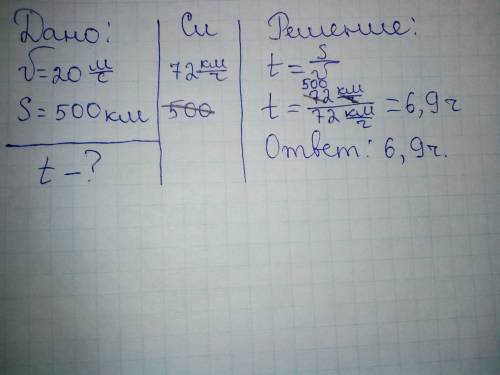 Дано:
v=20 м/с
S=500км
t-?
Си
72 км/ч
500
Решение:
t=S/v
t=500 км/72 км/ч=6,9ч
Ответ: 6,9ч.